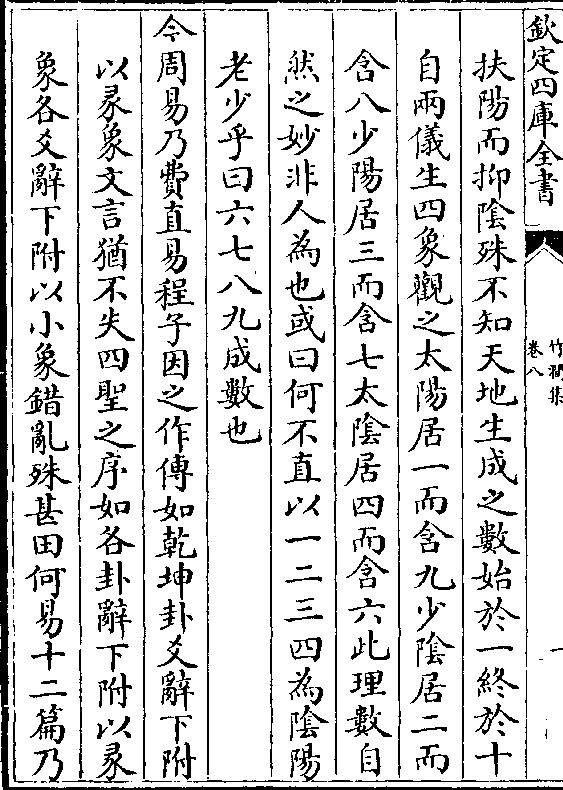 欽定四庫全書
竹澗集
卷八
扶陽而抑陰殊不知天地生成之數始於一終於十
自兩儀生四象觀之太陽居一而含九少陰居二而
含八少陽居三而含七太陰居四而含六此理數自
然之妙非人為也或曰何不直以一二三四為陰陽
老少乎曰六七八九成數也
今周易乃費直易程子因之作傳如乾坤卦爻辭下附
以彖象文言猶不失四聖之序如各卦辭下附以彖
象各爻辭下附以小象錯亂殊甚田何易十二篇乃